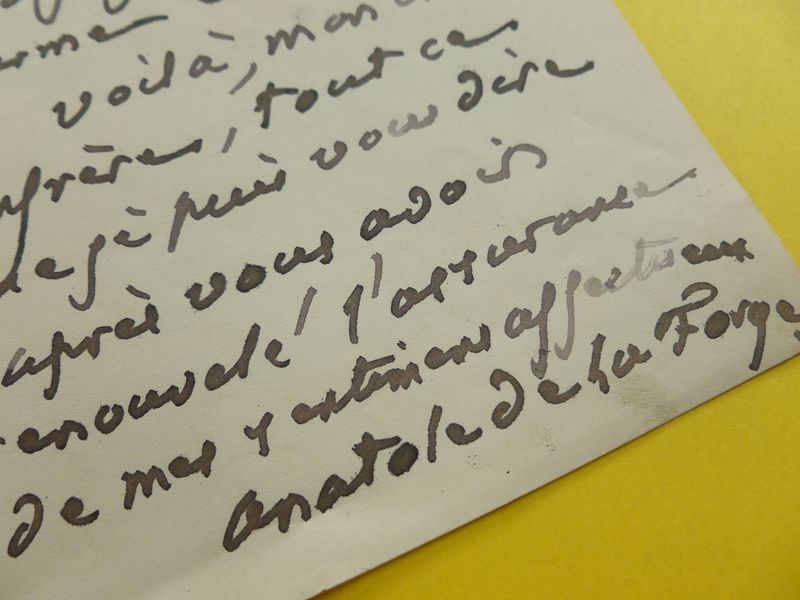 voilà, mon
tout ce
je puis vous dire
après vous avoir
renouvelé l'assurance
de mes sentimens affectueux
Anatole de La Forge